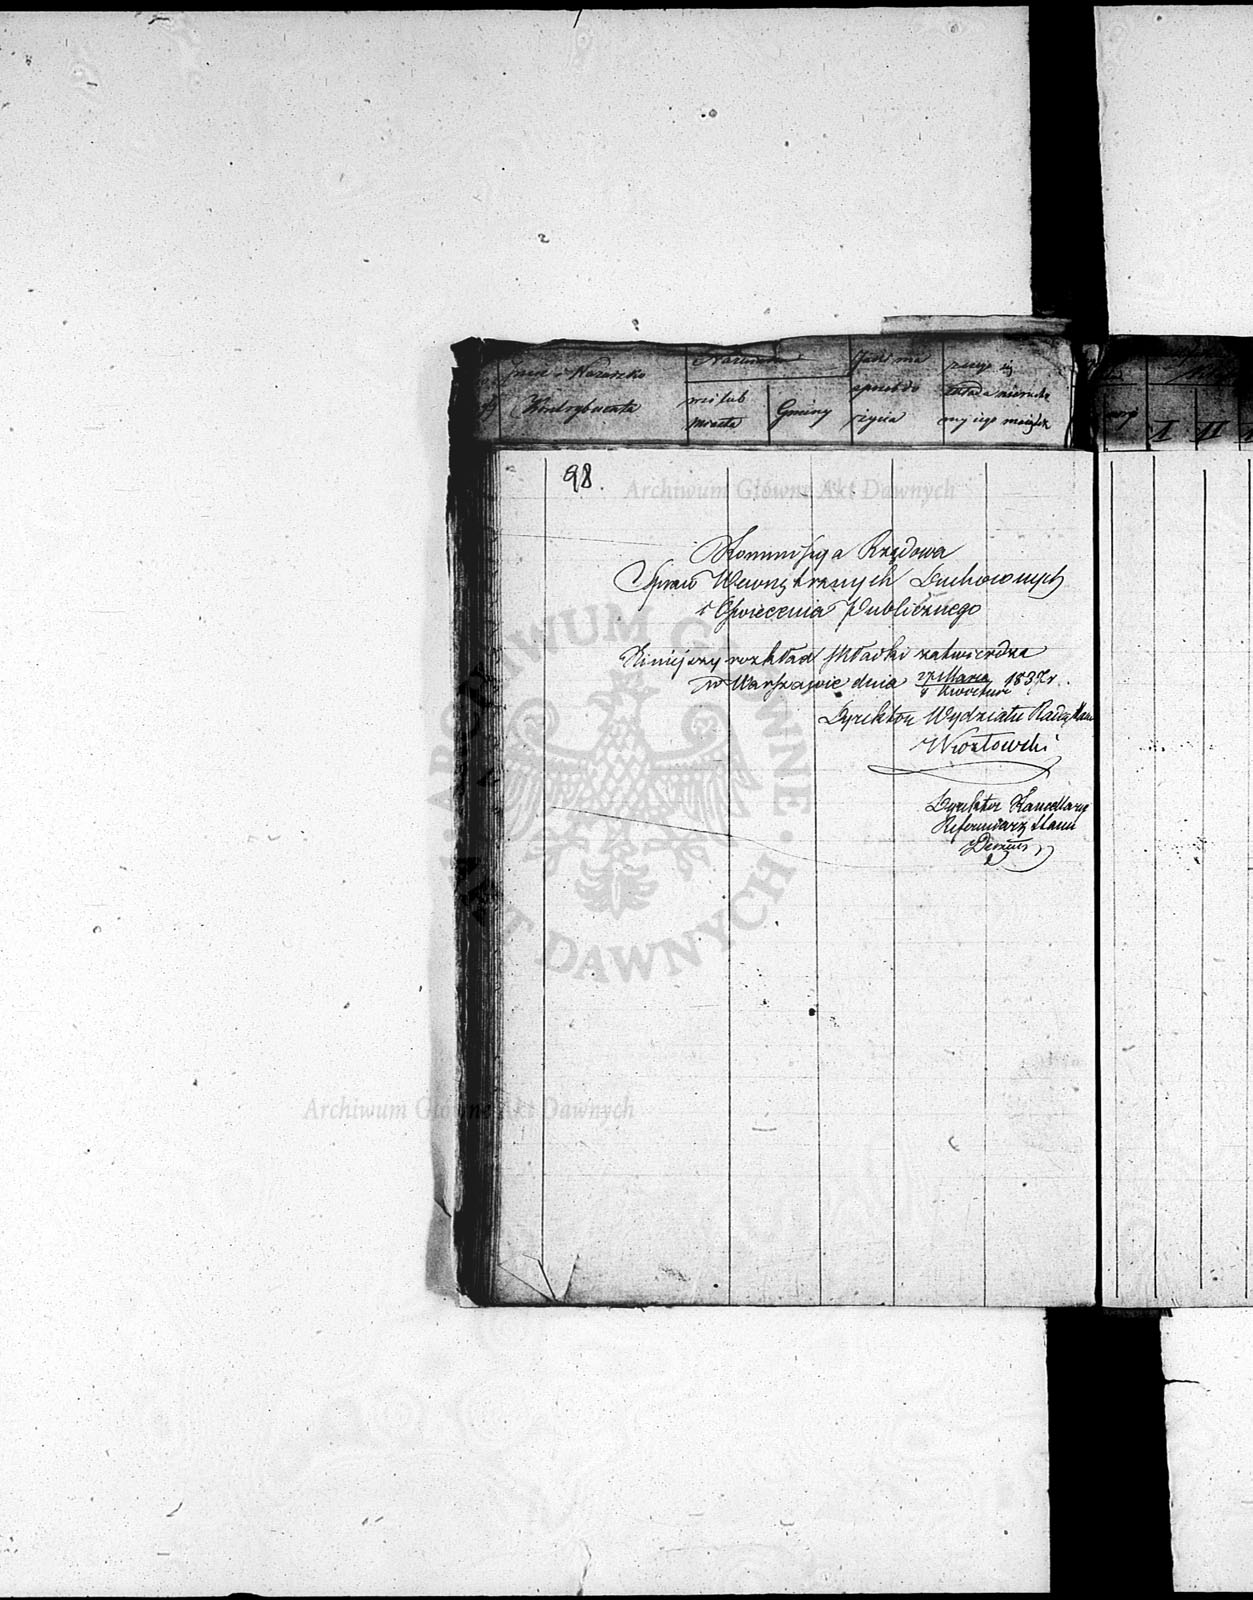 Imie i Nazwisko
Kontrybuenta
Nazwisko
wsi lub
miasta
Gminy
Jaki ma
sposób do
życia
z czego się
składa nierucho
my iego maiątek
I II
98.
Kommissya Rządowa
Spraw Wewnętrznych Duchownych
i Oświecenia Publicznego
Ninieyszy rozkład składki zatwierdza
w Warszawie dnia 27 Marca 1837 r.
Kwietnia
Dyrektor Wydziału Radzca Stanu
Dyrektor Kancellaryi
Referendarz Stanu
Archiwum Główne Akt Dawnych
ARCHIWUM GŁÓWNE AKT DAWNYCH
Archiwum Główne Akt Dawnych